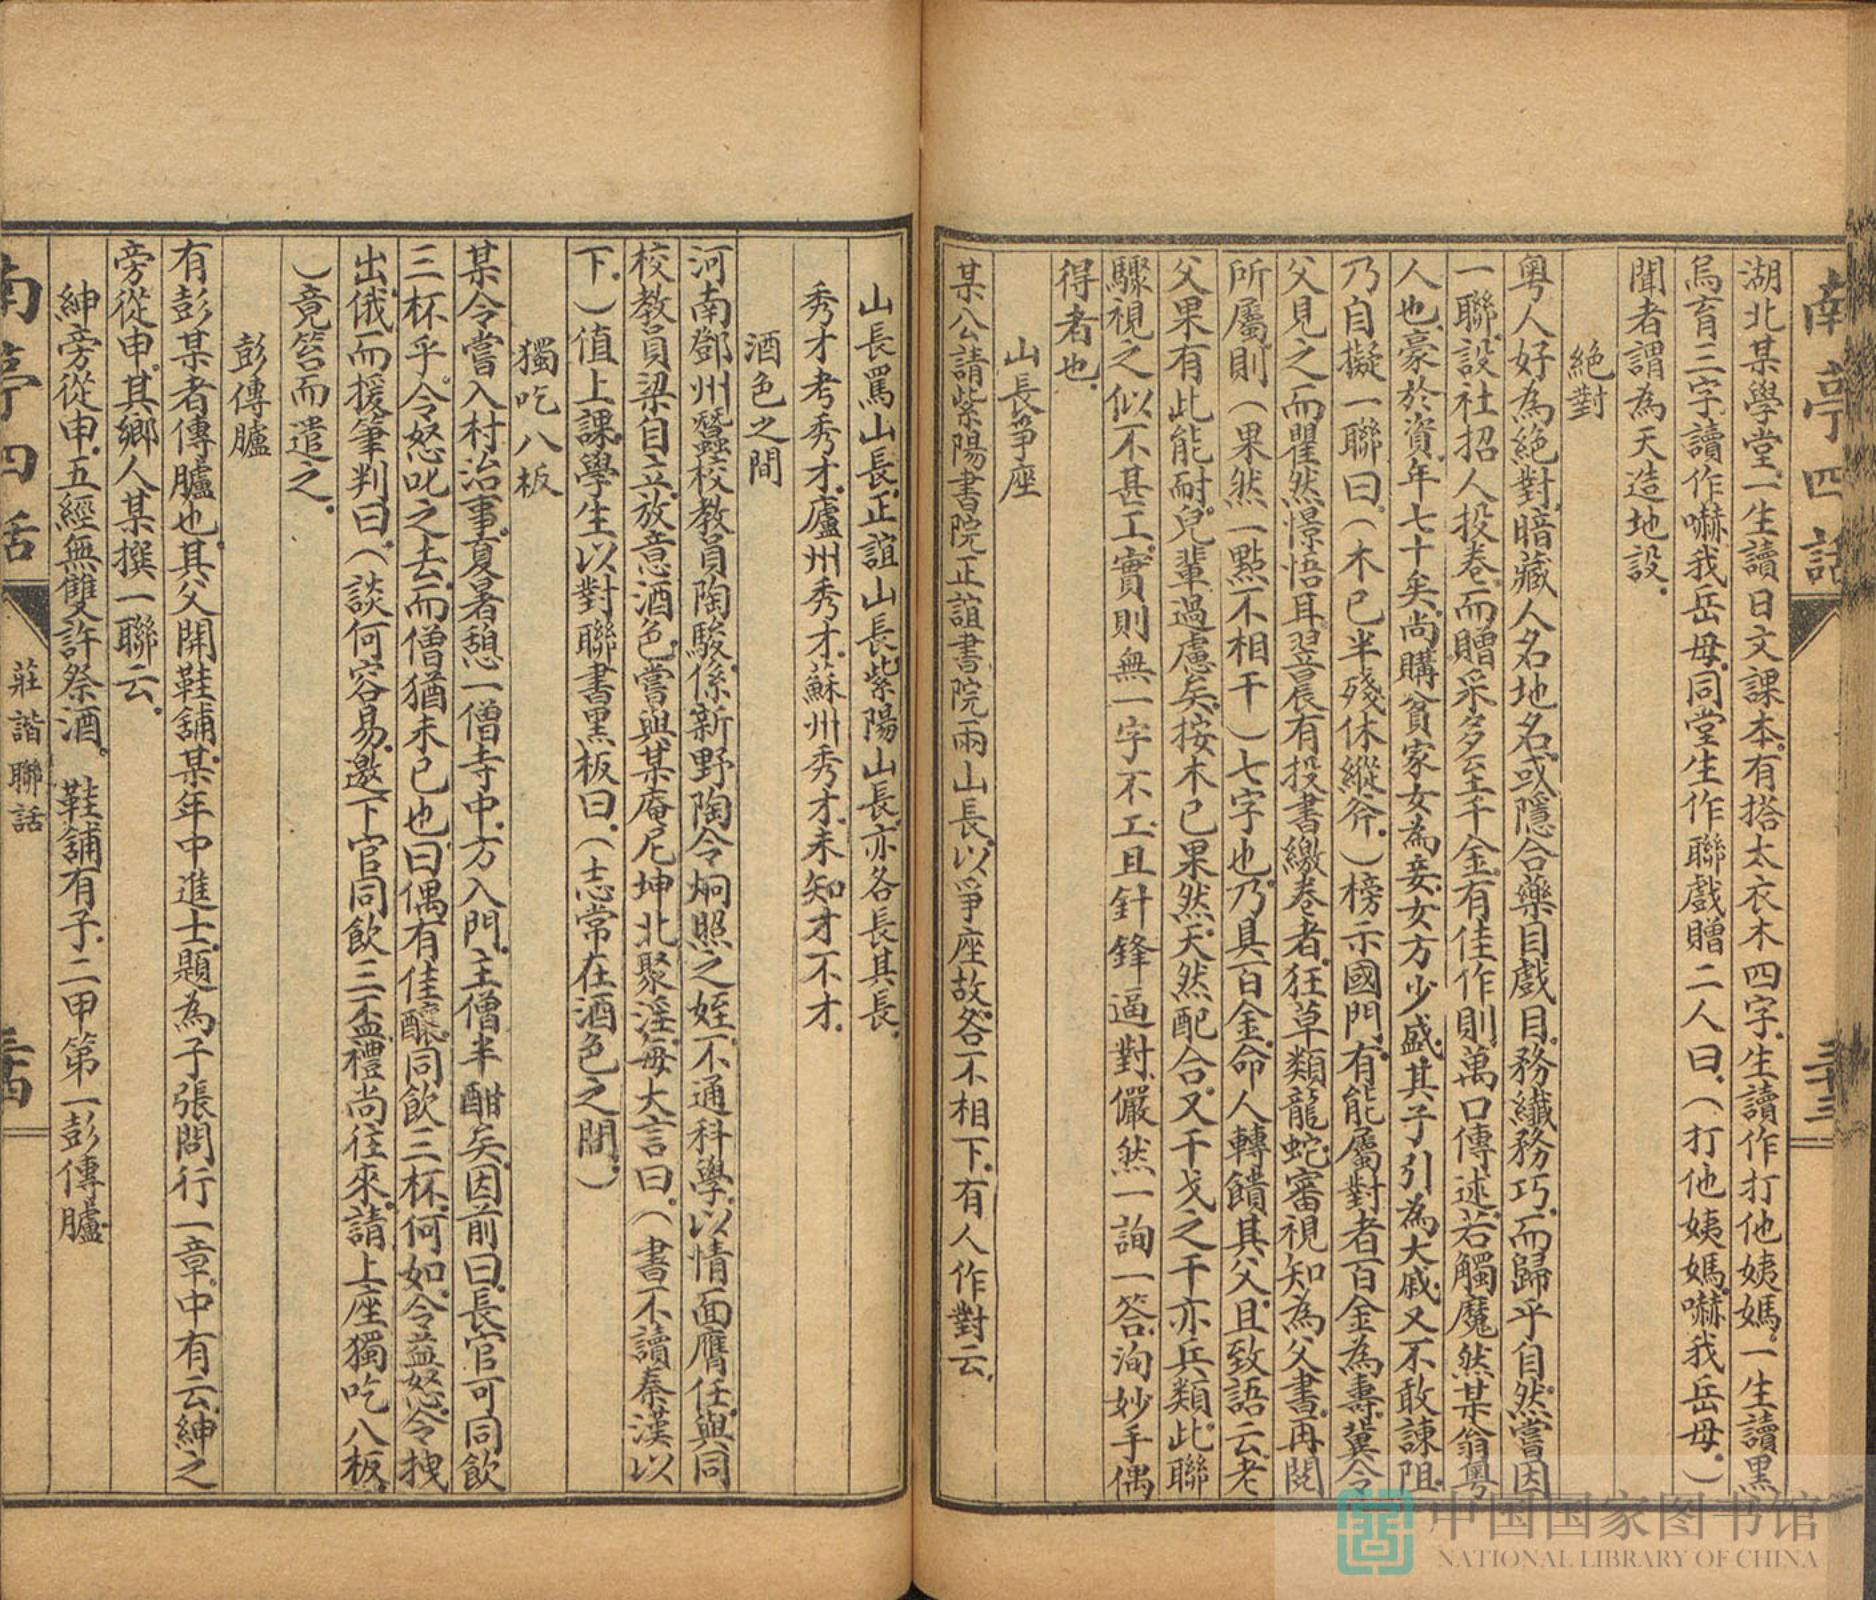 南亭四話
三十三
湖北某學堂一生讀日文課本有搭太衣木四字生讀作打他姨媽一生讀黑
烏育三字讀作嚇我岳母同堂生作聯戲贈二人曰（打他姨媽嚇我岳母）
聞者謂為天造地設
絕對
粵人好為絕對暗藏人名地名或隱合藥目戲目務纖務巧而歸乎自然嘗因
一聯設社招人投卷而贈采多至千金有佳作則萬口傳述若觸魔然某翁粵
人也豪於資年七十矣尚購貧家女為妾女方少盛其子引為大戚又不敢諫阻
乃自擬一聯曰（木已半殘休縱斧）榜示國門有能屬對者百金為壽冀令
父見之而瞿然憬悟耳翌晨有投書繳卷者狂草類龍蛇審視知為父書再閱
所屬則（果然一點不相干）七字也乃具百金命人轉饋其父且致語云老
父果有此能耐兒輩過慮矣按木已果然天然配合又干戈之干亦兵類此聯
驟視之似不甚工實則無一字不工且針鋒逼對儼然一詢一答洵妙手偶
得者也
山長爭座
某公請紫陽書院正誼書院兩山長以爭座故各不相下有人作對云
山長罵山長正誼山長紫陽山長亦各長其長
秀才考秀才廬州秀才蘇州秀才未知才不才
酒色之間
河南鄧州蠶校教員陶駿係新野陶令炯照之姪不通科學以情面膺任與同
校教員梁自立放意酒色嘗與某庵尼坤北聚淫每大言曰（書不讀秦漢以
下）值上課學生以對聯書黑板曰（志常在酒色之間）
獨吃八板
某令嘗入村治事夏暑憩一僧寺中方入門主僧半酣矣因前曰長官可同飲
三杯乎令怒叱之去而僧猶未已也曰偶有佳釀同飲三杯何如令益怒令拽
出俄而援筆判曰（談何容易邀下官同飲三盃禮尚往來請上座獨吃八板
）竟笞而遣之
彭傳臚
有彭某者傳臚也其父開鞋舖某年中進士題為子張問行一章中有云紳之
旁從申其鄉人某撰一聯云
紳旁從申五經無雙許祭酒　鞋舖有子二甲第一彭傳臚
南亭四話
莊諧聯話